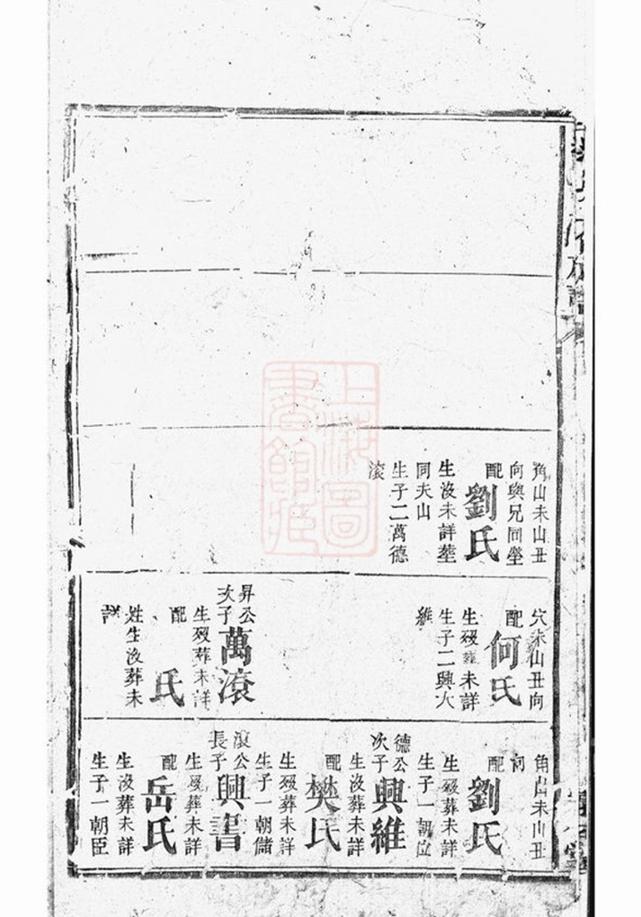 角山未山丑
向與兄同塋
配
劉氏
生沒未詳塟
同夫山
生子二萬德
滚
穴未山丑向
配
何氏
生歿葬未詳
生子二興大
維
昇公
次子
萬滚
生歿葬未詳
配
氏
姓生沒葬未
詳
角山未山丑
向
配
劉氏
生歿葬未詳
生子一朝位
德公
次子
興維
生沒葬未詳
配
樊氏
生歿葬未詳
生子一朝儲
滾公
長子
興書
生歿葬未詳
配
岳氏
生沒葬未詳
生子一朝臣
上海圖
書館藏